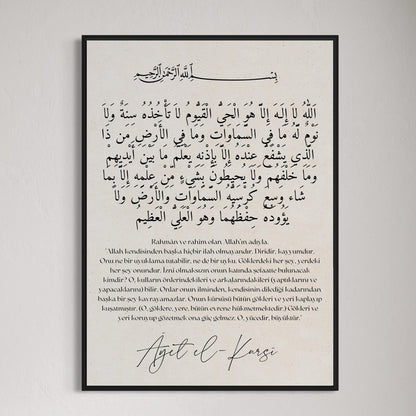 بِسْمِ اللَّهِ الرَّحْمَٰنِ الرَّحِيمِ
اللَّهُ لَا إِلَٰهَ إِلَّا هُوَ الْحَيُّ الْقَيُّومُ لَا تَأْخُذُهُ سِنَةٌ وَلَا
نَوْمٌ لَهُ مَا فِي السَّمَاوَاتِ وَمَا فِي الْأَرْضِ مَن ذَا
الَّذِي يَشْفَعُ عِنْدَهُ إِلَّا بِإِذْنِهِ يَعْلَمُ مَا بَيْنَ أَيْدِيهِمْ
وَمَا خَلْفَهُمْ وَلَا يُحِيطُونَ بِشَيْءٍ مِّنْ عِلْمِهِ إِلَّا بِمَا
شَاءَ وَسِعَ كُرْسِيُّهُ السَّمَاوَاتِ وَالْأَرْضَ وَلَا
يَؤُودُهُ حِفْظُهُمَا وَهُوَ الْعَلِيُّ الْعَظِيمُ
Rahmân ve rahîm olan Allah'ın adıyla.
"Allah kendisinden başka hiçbir ilah olmayandır. Diridir, kayyumdur.
Onu ne bir uyuklama tutabilir, ne de bir uyku. Göklerdeki her şey, yerdeki
her şey onundur. İzni olmaksızın onun katında şefaatte bulunacak
kimdir? O, kulların önlerindekileri ve arkalarındakileri (yaptıklarını ve
yapacaklarını) bilir. Onlar onun ilminden, kendisinin dilediği kadarından
başka bir şey kavrayamazlar. Onun kürsüsü bütün gökleri ve yeri kaplayıp
kuşatmıştır. (O, göklere, yere, bütün evrene hükmetmektedir.) Gökleri ve
yeri koruyup gözetmek ona güç gelmez. O, yücedir, büyüktür."
Âyet el-Kürsî